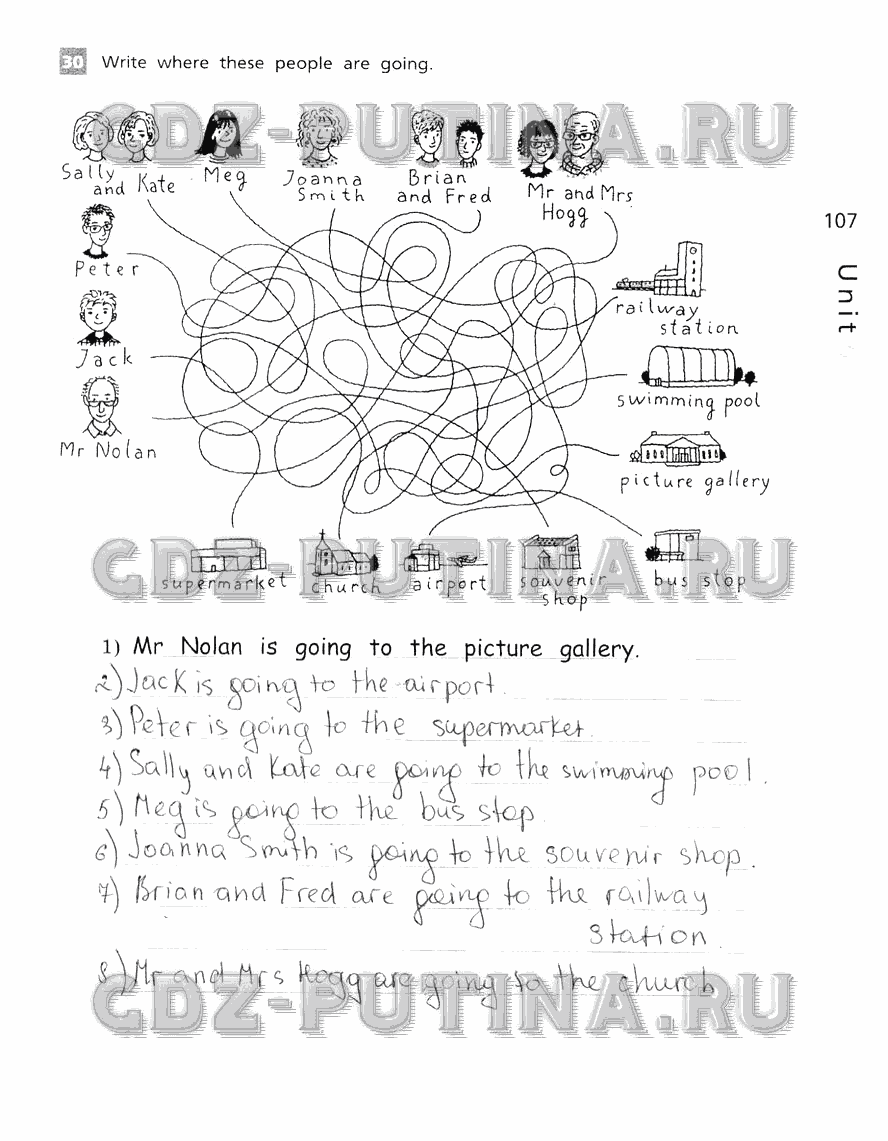 30 Write where these people are going.
GDZ-PUTINA.RU
Sally
and Kate
Meg
Joanna
Smith
Brian
and Fred
Mr and Mrs
Hogg
107
Unit
Peter
railway
station
Jack
swimming pool
Mr Nolan
picture gallery
GDZ-PUTINA.RU
supermarket
church
airport
souvenir
shop
bus stop
1) Mr Nolan is going to the picture gallery.
2) Jack is going to the airport.
3) Peter is going to the supermarket.
4) Sally and Kate are going to the swimming pool.
5) Meg is going to the bus stop.
6) Joanna Smith is going to the souvenir shop.
7) Brian and Fred are going to the railway
station.
8) Mr and Mrs Hogg are going to the church
GDZ-PUTINA.RU